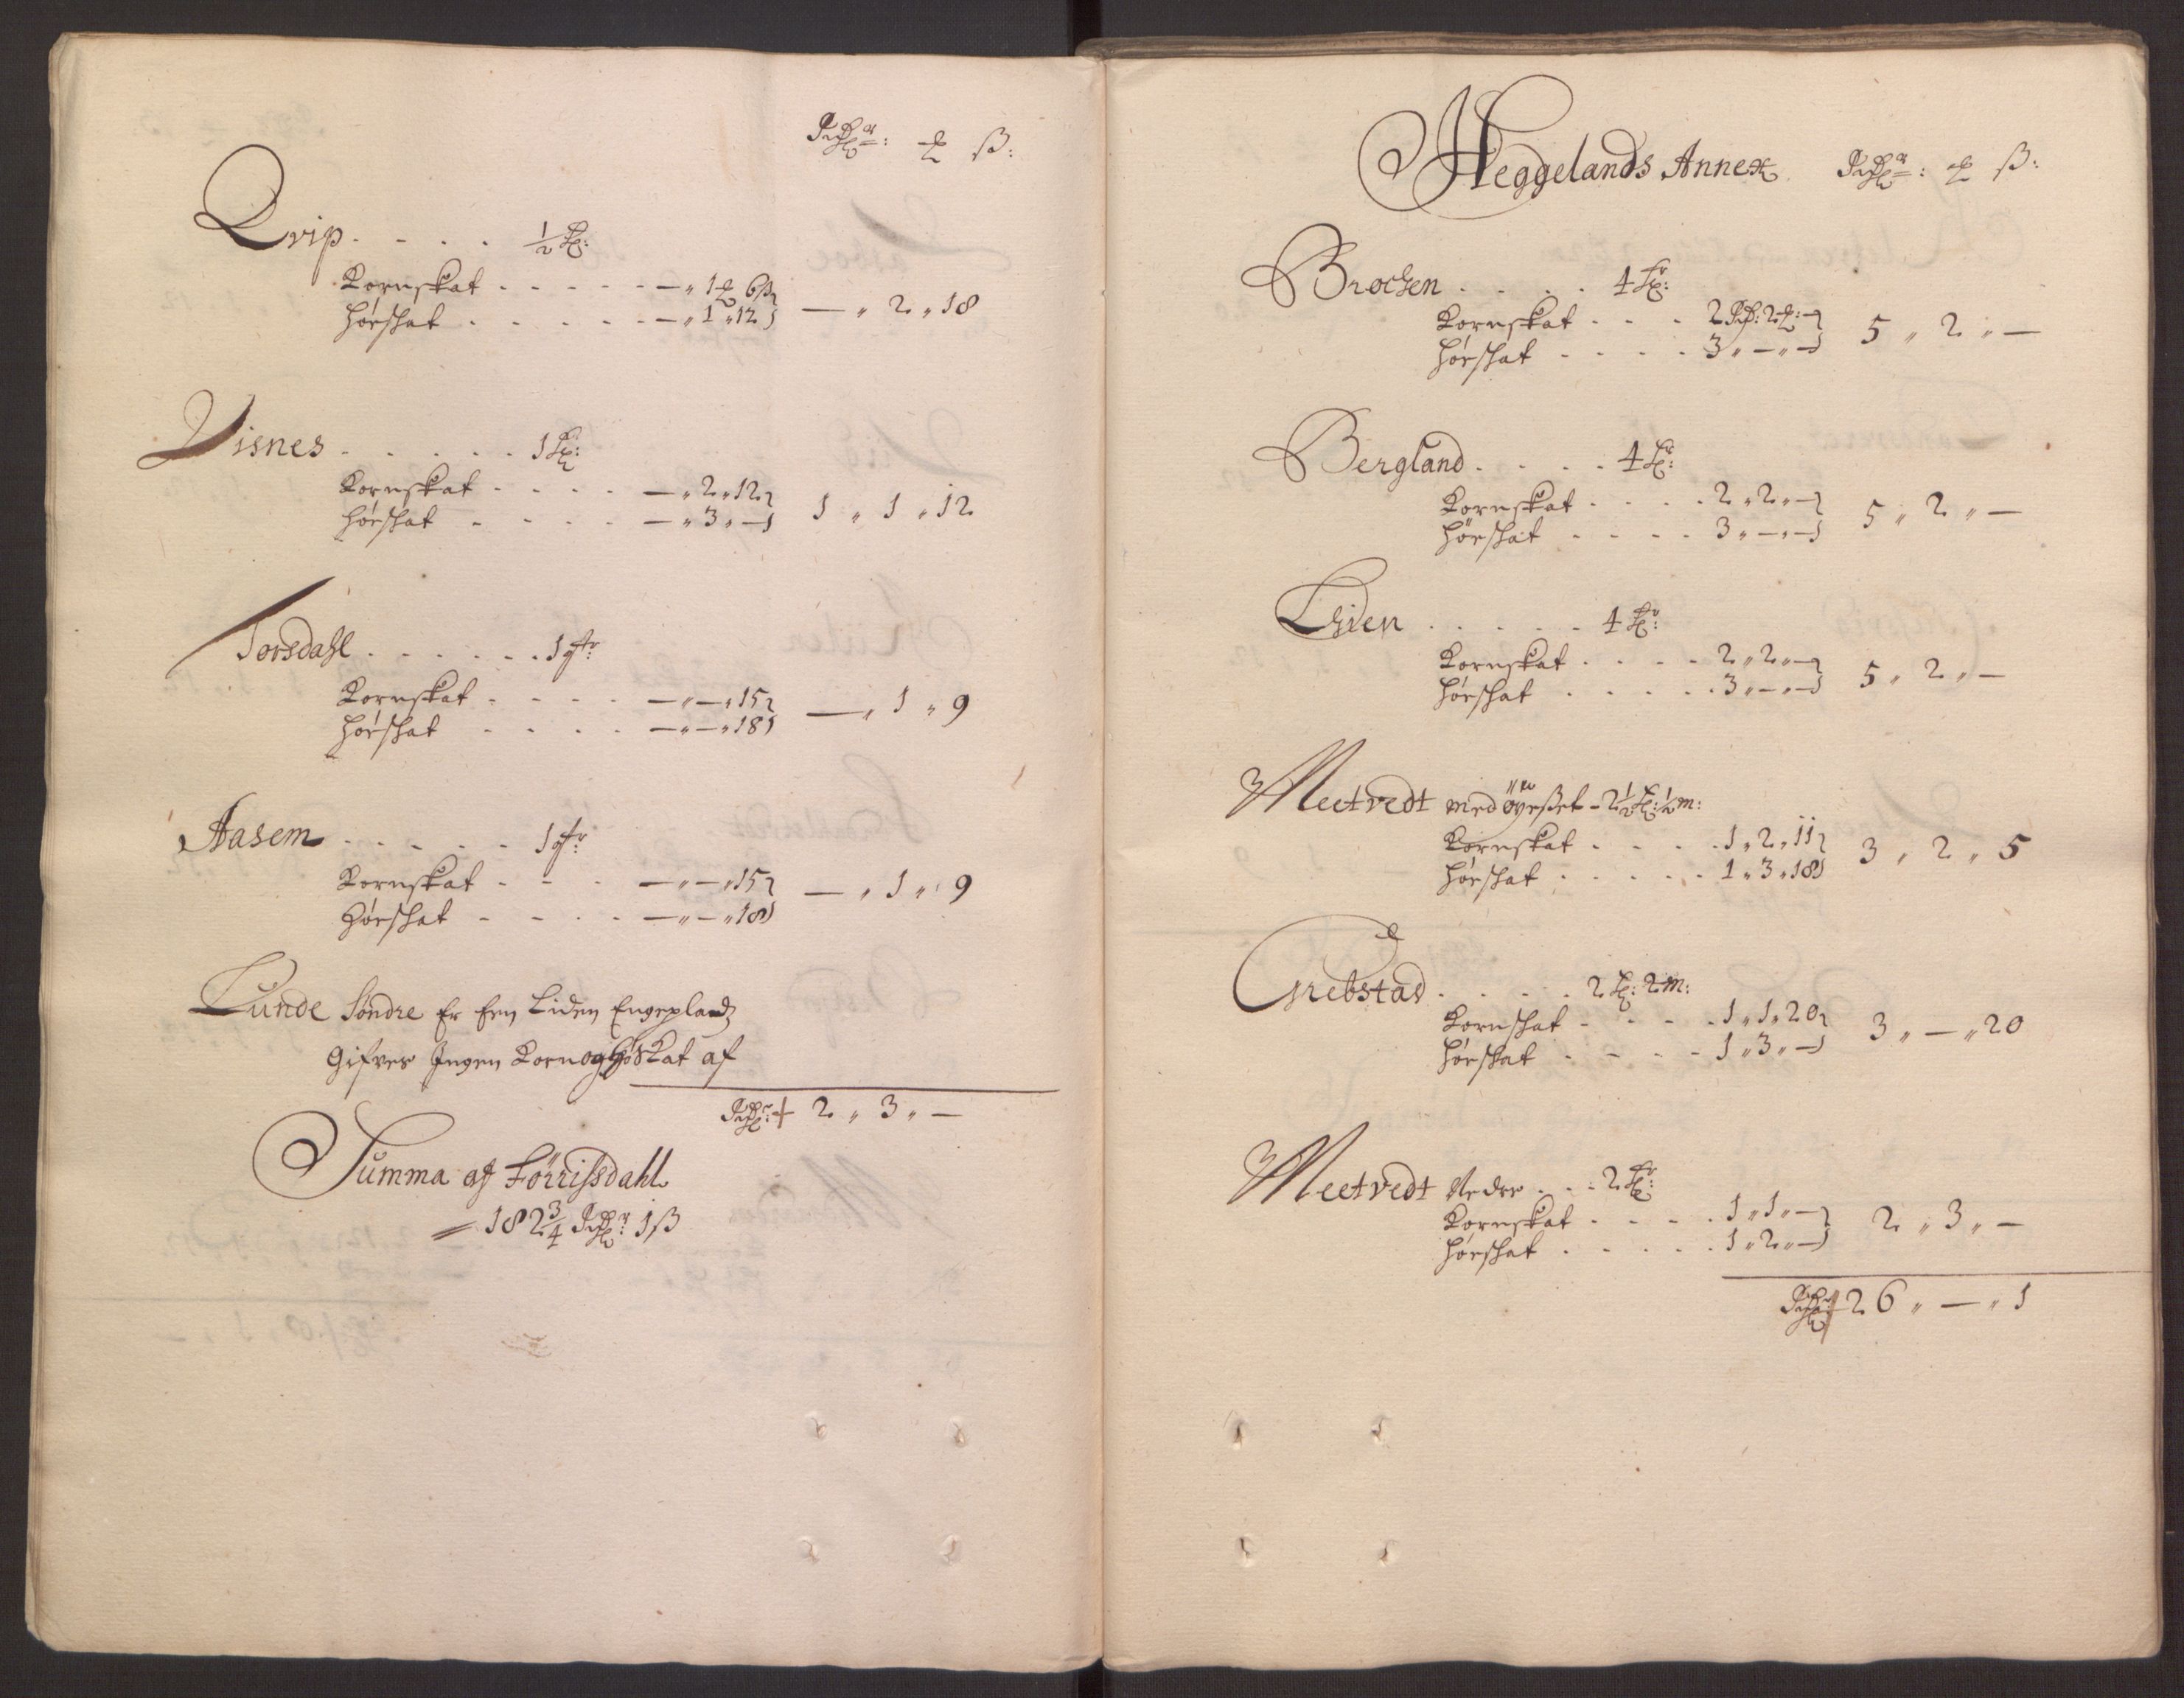 Rdlr: ort ß:
Qvip . . . . ½ Sk:
Kornskat . . . . . — „ 1 ort 6 ß
Hörskat . . . . . — „ 1 „ 12 — „ 2 „ 18
Visnes . . . . . 1 Sk:
Kornskat . . . . — „ 2 „ 12
Hörskat . . . . — „ 3 „ — 1 „ 1 „ 12
Torsdahl . . . . . . 1 fr:
Kornskat . . . . — „ — „ 15
Hörskat . . . . — „ — „ 18 — „ 1 „ 9
Aasem . . . . . 1 fr:
Kornskat . . . — „ — „ 15
Hörskat . . . . — „ — „ 18 — „ 1 „ 9
Lunde Söndre Er Een Liden Engeplads
Gifves Ingen Korn og Höskat af
Rdlr: 2 „ 3 „ —
Summa af Förrissdahl
= 182¾ Rdlr: 1 ß
Heggelands Annex Rdlr: ort ß:
Brochen . . . . 4 Sk:
Kornskat . . . 2 Rd: 2 ort: —
Hörskat . . . . 3 „ — „ — 5 „ 2 „ —
Bergland . . . . 4 Sk:
Kornskat . . . . 2 „ 2 „ —
Hörskat . . . . 3 „ — „ — 5 „ 2 „ —
Lhien . . . . . 4 Sk:
Kornskat . . . . 2 „ 2 „ —
Hörskat . . . . . 3 „ — „ — 5 „ 2 „ —
Meetvedt med öyeßet - 2½ Sk: ½ m:
Kornskat . . . . 1 „ 2 „ 11
Hörskat . . . . . 1 „ 3 „ 18 3 „ 2 „ 5
Grebstad . . . . 2 Sk: 2 m:
Kornskat . . . . 1 „ 1 „ 20
Hörskat . . . . 1 „ 3 „ — 3 „ — „ 20
Meetvedt Nedre . . . 2 Sk:
Kornskat . . . . 1 „ 1 „ —
Hörskat . . . . . 1 „ 2 „ — 2 „ 3 „ —
Rdlr: 26 „ — „ 1